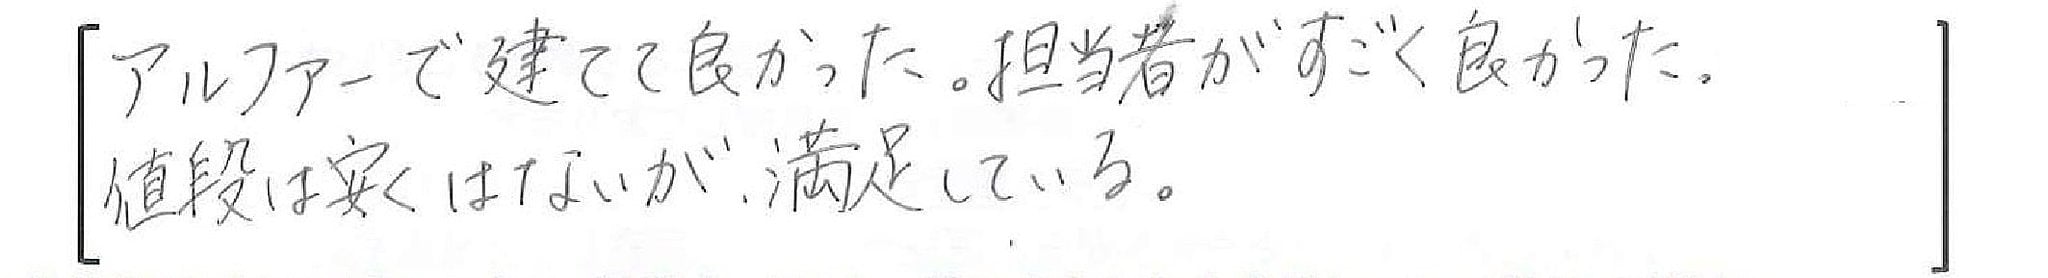 アルファーで建てて良かった。担当者がすごく良かった。
値段は安くはないが、満足している。